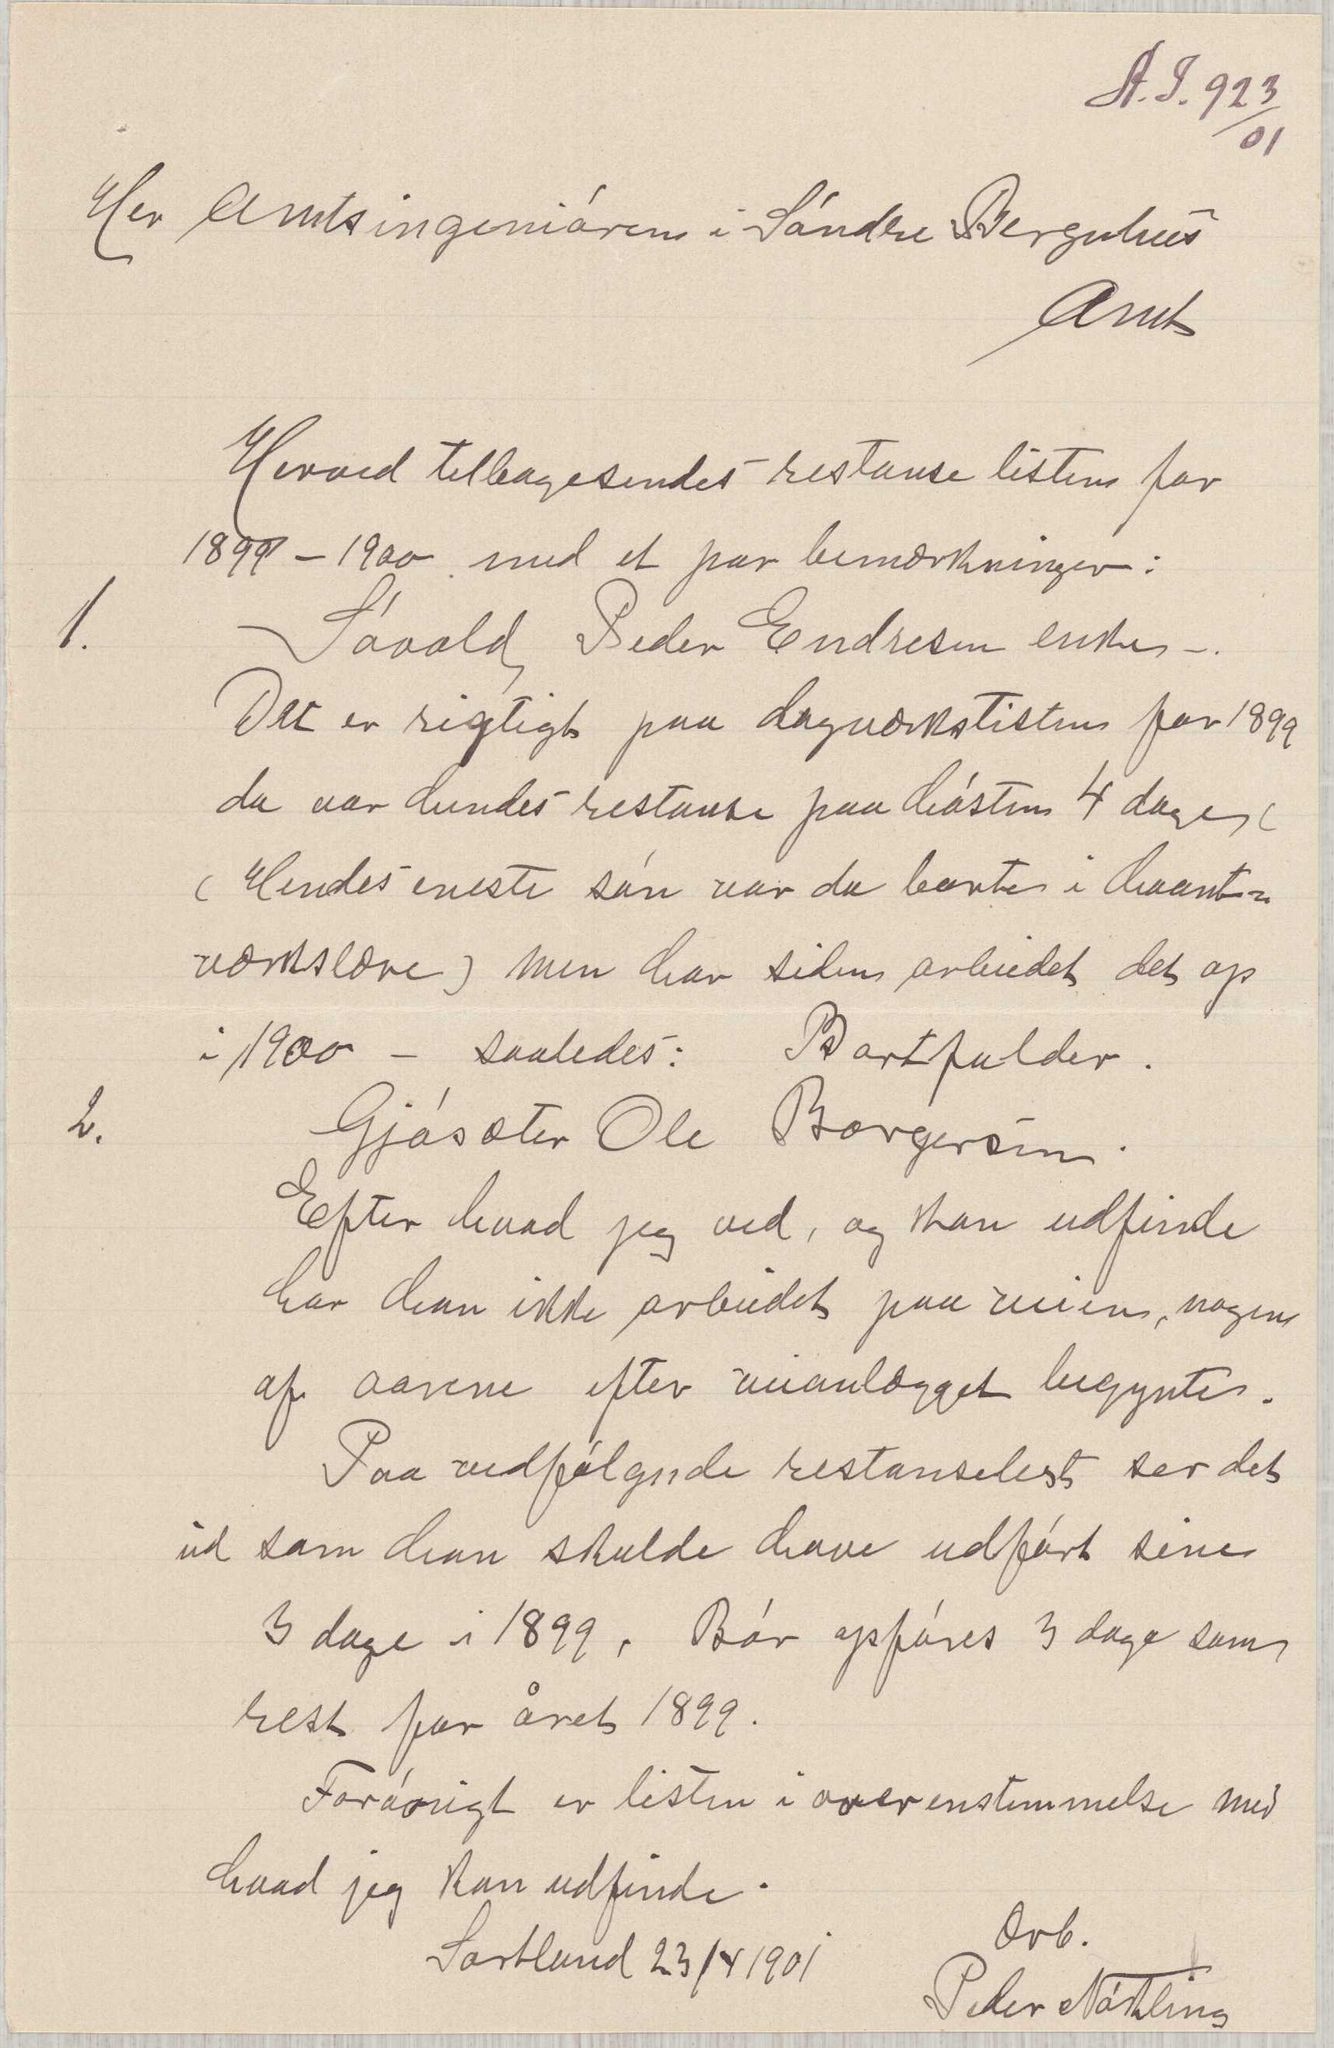 A.I. 923/01
Her Amtsingeniøren i Søndre Bergenhus
Amt
Herved tilbagesendes restanselisten for
1899 – 1900 med et par bemærkninger:
1. Søvold, Peder Endresen enke –.
Det er rigtigt paa dagværkslisten for 1899
da var hendes restanse paa høsten 4 dage,
(Hendes eneste søn var da borte i haant-
værkslære) men har siden arbeidet det op
i 1900 – saaledes: Bortfalder.
2. Gjøsæter Ole Børgersen.
Efter hvad jeg ved, og kan udfinde
har han ikke arbeidet paa veien, nogen
af aarene efter veianlægget begynte.
Paa vedfølgende restanselist ser det
ud som han skulde have udført sine
3 dage i 1899. Bør opføres 3 dage som
rest for året 1899.
Forøvrigt er listen i overenstemmelse med
hvad jeg kan udfinde.
Sortland 23/4 1901 Ærb.
Peder Nøkling